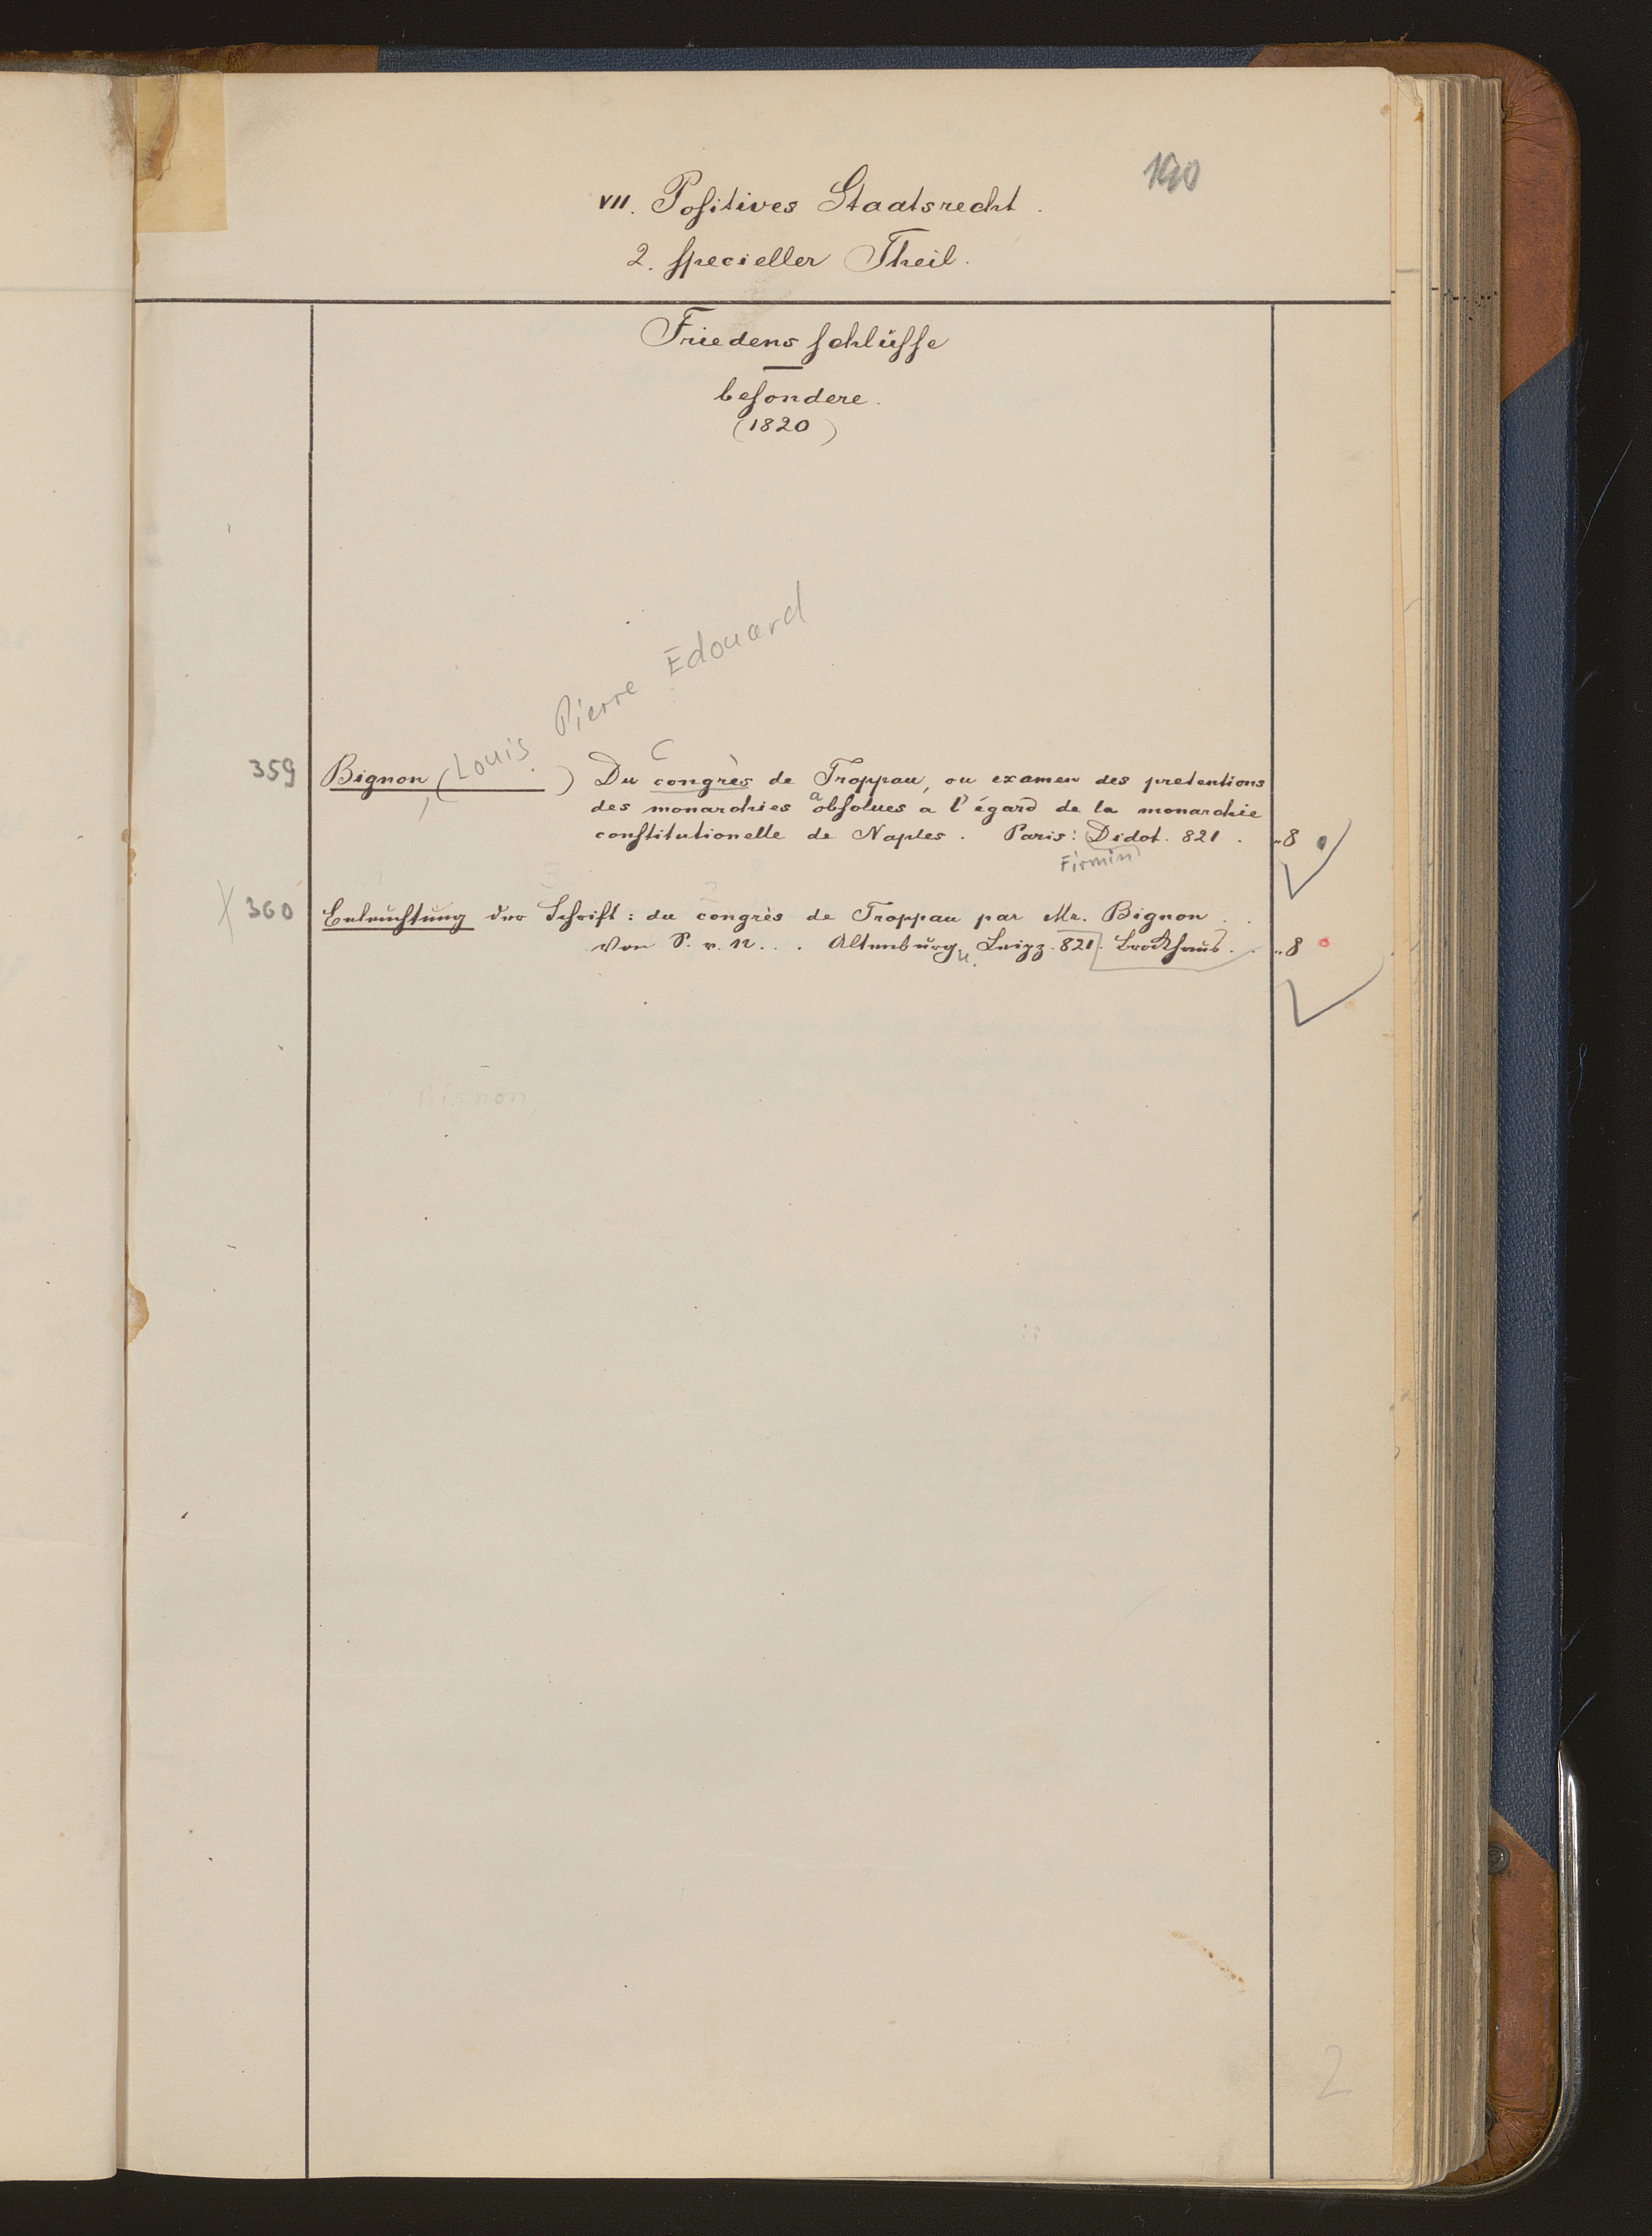 190
VII. Poſitives Staatsrecht.
2. ſpecieller Theil.
Friedensſchlüſſe
beſondere.
(1820)
Louis Pierre Edouard
359 Bignon, ( ) Du congrès de Troppau, ou examen des pretentions
C
des monarchies abſolues a l'égard de la monarchie
conſtitutionelle de Naples. Paris: Didot. 821. „8
Firmin
X 360 Beleuchtung der Schrift: du congrès de Troppau par Mr. Bignon.
Von S. v. N... Altenburg u. Leipz. 821. Brockhaus. „8
Bignon,
2